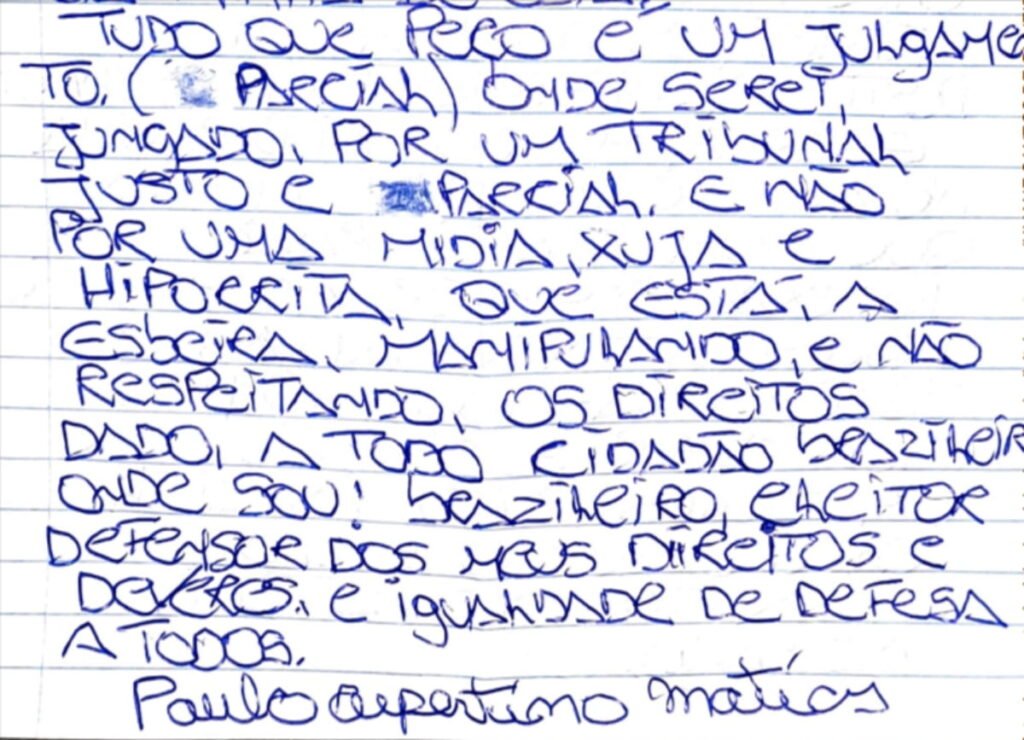 TUDO QUE PEÇO E UM JULGAME
TO, ( PARCIAL) ONDE SEREI,
JUNGADO, POR UM TRIBUNAL
JUSTO E PARCIAL, E NÃO
POR UMA MIDIA, XUJA E
HIPOCRITA, QUE ESTÁ, A
ESBEIRA, MANIPULANDO, E NÃO
RESPEITANDO, OS DIREITOS
DADO, A TODO CIDADÃO BRAZILEIR
ONDE SOU! BRAZILEIRO, ELEITOR
DEFENSOR DOS MEUS DIREITOS E
DEVEROS, E IGUALDADE DE DEFESA
A TODOS.
Paulo Cupertino Matias